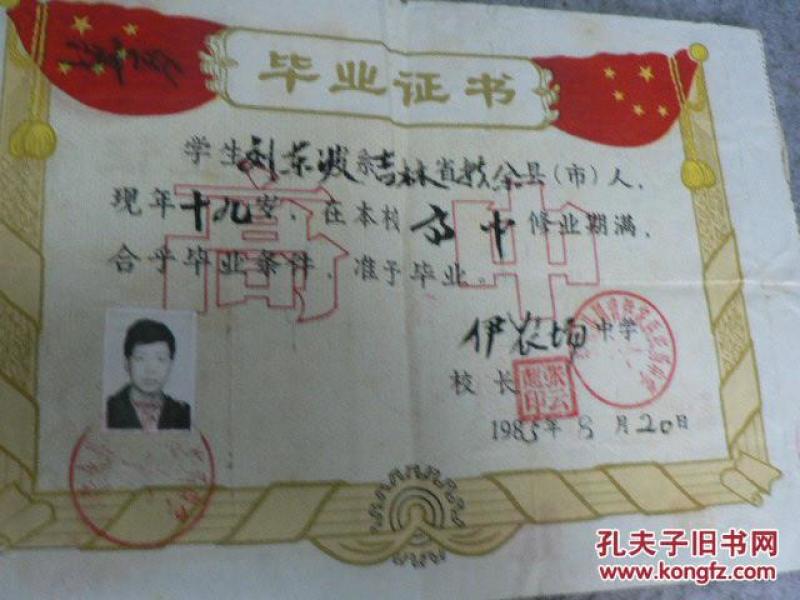 毕业证书
学生刘东波系吉林省扶余县(市)人,
现年十九岁,在本校高中修业期满,
合乎毕业条件,准予毕业。
高中
伊农场中学
校长
张云彪印
1985年8月20日
孔夫子旧书网
www.kongfz.com